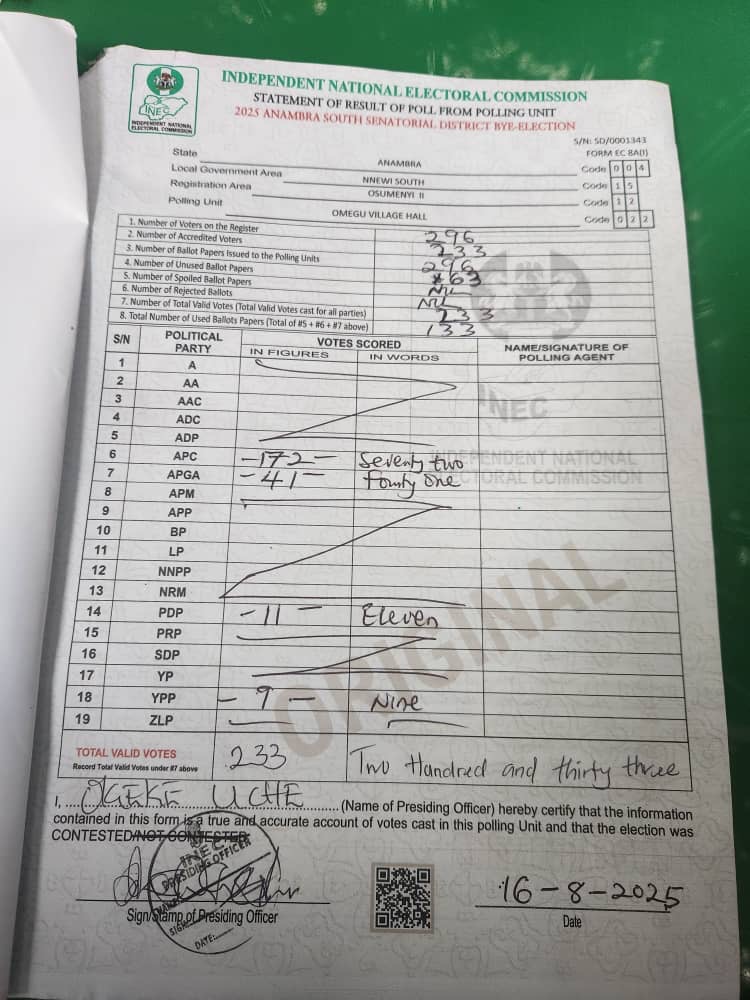 INEC
INDEPENDENT NATIONAL
ELECTORAL COMMISSION
INDEPENDENT NATIONAL ELECTORAL COMMISSION
STATEMENT OF RESULT OF POLL FROM POLLING UNIT
2025 ANAMBRA SOUTH SENATORIAL DISTRICT BYE-ELECTION
S/N: SD/0001343
FORM EC 8A(I)
State ANAMBRA Code 0 0 4
Local Government Area NNEWI SOUTH Code 1 5
Registration Area OSUMENYI II Code 1 2
Polling Unit OMEGU VILLAGE HALL Code 0 2 2
1. Number of Voters on the Register 296
2. Number of Accredited Voters 233
3. Number of Ballot Papers Issued to the Polling Units 296
4. Number of Unused Ballot Papers 63
5. Number of Spoiled Ballot Papers NIL
6. Number of Rejected Ballots NIL
7. Number of Total Valid Votes (Total Valid Votes cast for all parties) 233
8. Total Number of Used Ballots Papers (Total of #5 + #6 + #7 above) 133
S/N POLITICAL PARTY VOTES SCORED NAME/SIGNATURE OF POLLING AGENT
IN FIGURES IN WORDS
1 A
2 AA
3 AAC
4 ADC
5 ADP
6 APC -172- Seventy two
7 APGA -41- Fourty one
8 APM
9 APP
10 BP
11 LP
12 NNPP
13 NRM
14 PDP -11- Eleven
15 PRP
16 SDP
17 YP
18 YPP -9- Nine
19 ZLP
INEC
INDEPENDENT NATIONAL
ELECTORAL COMMISSION
ORIGINAL
TOTAL VALID VOTES 233 Two Hundred and thirty three
Record Total Valid Votes under #7 above
I, OGEKE UCHE (Name of Presiding Officer) hereby certify that the information
contained in this form is a true and accurate account of votes cast in this polling Unit and that the election was
CONTESTED/NOT CONTESTED
INEC
PRESIDING OFFICER
SIGN
DATE:
16-8-2025
Sign/Stamp of Presiding Officer
Date